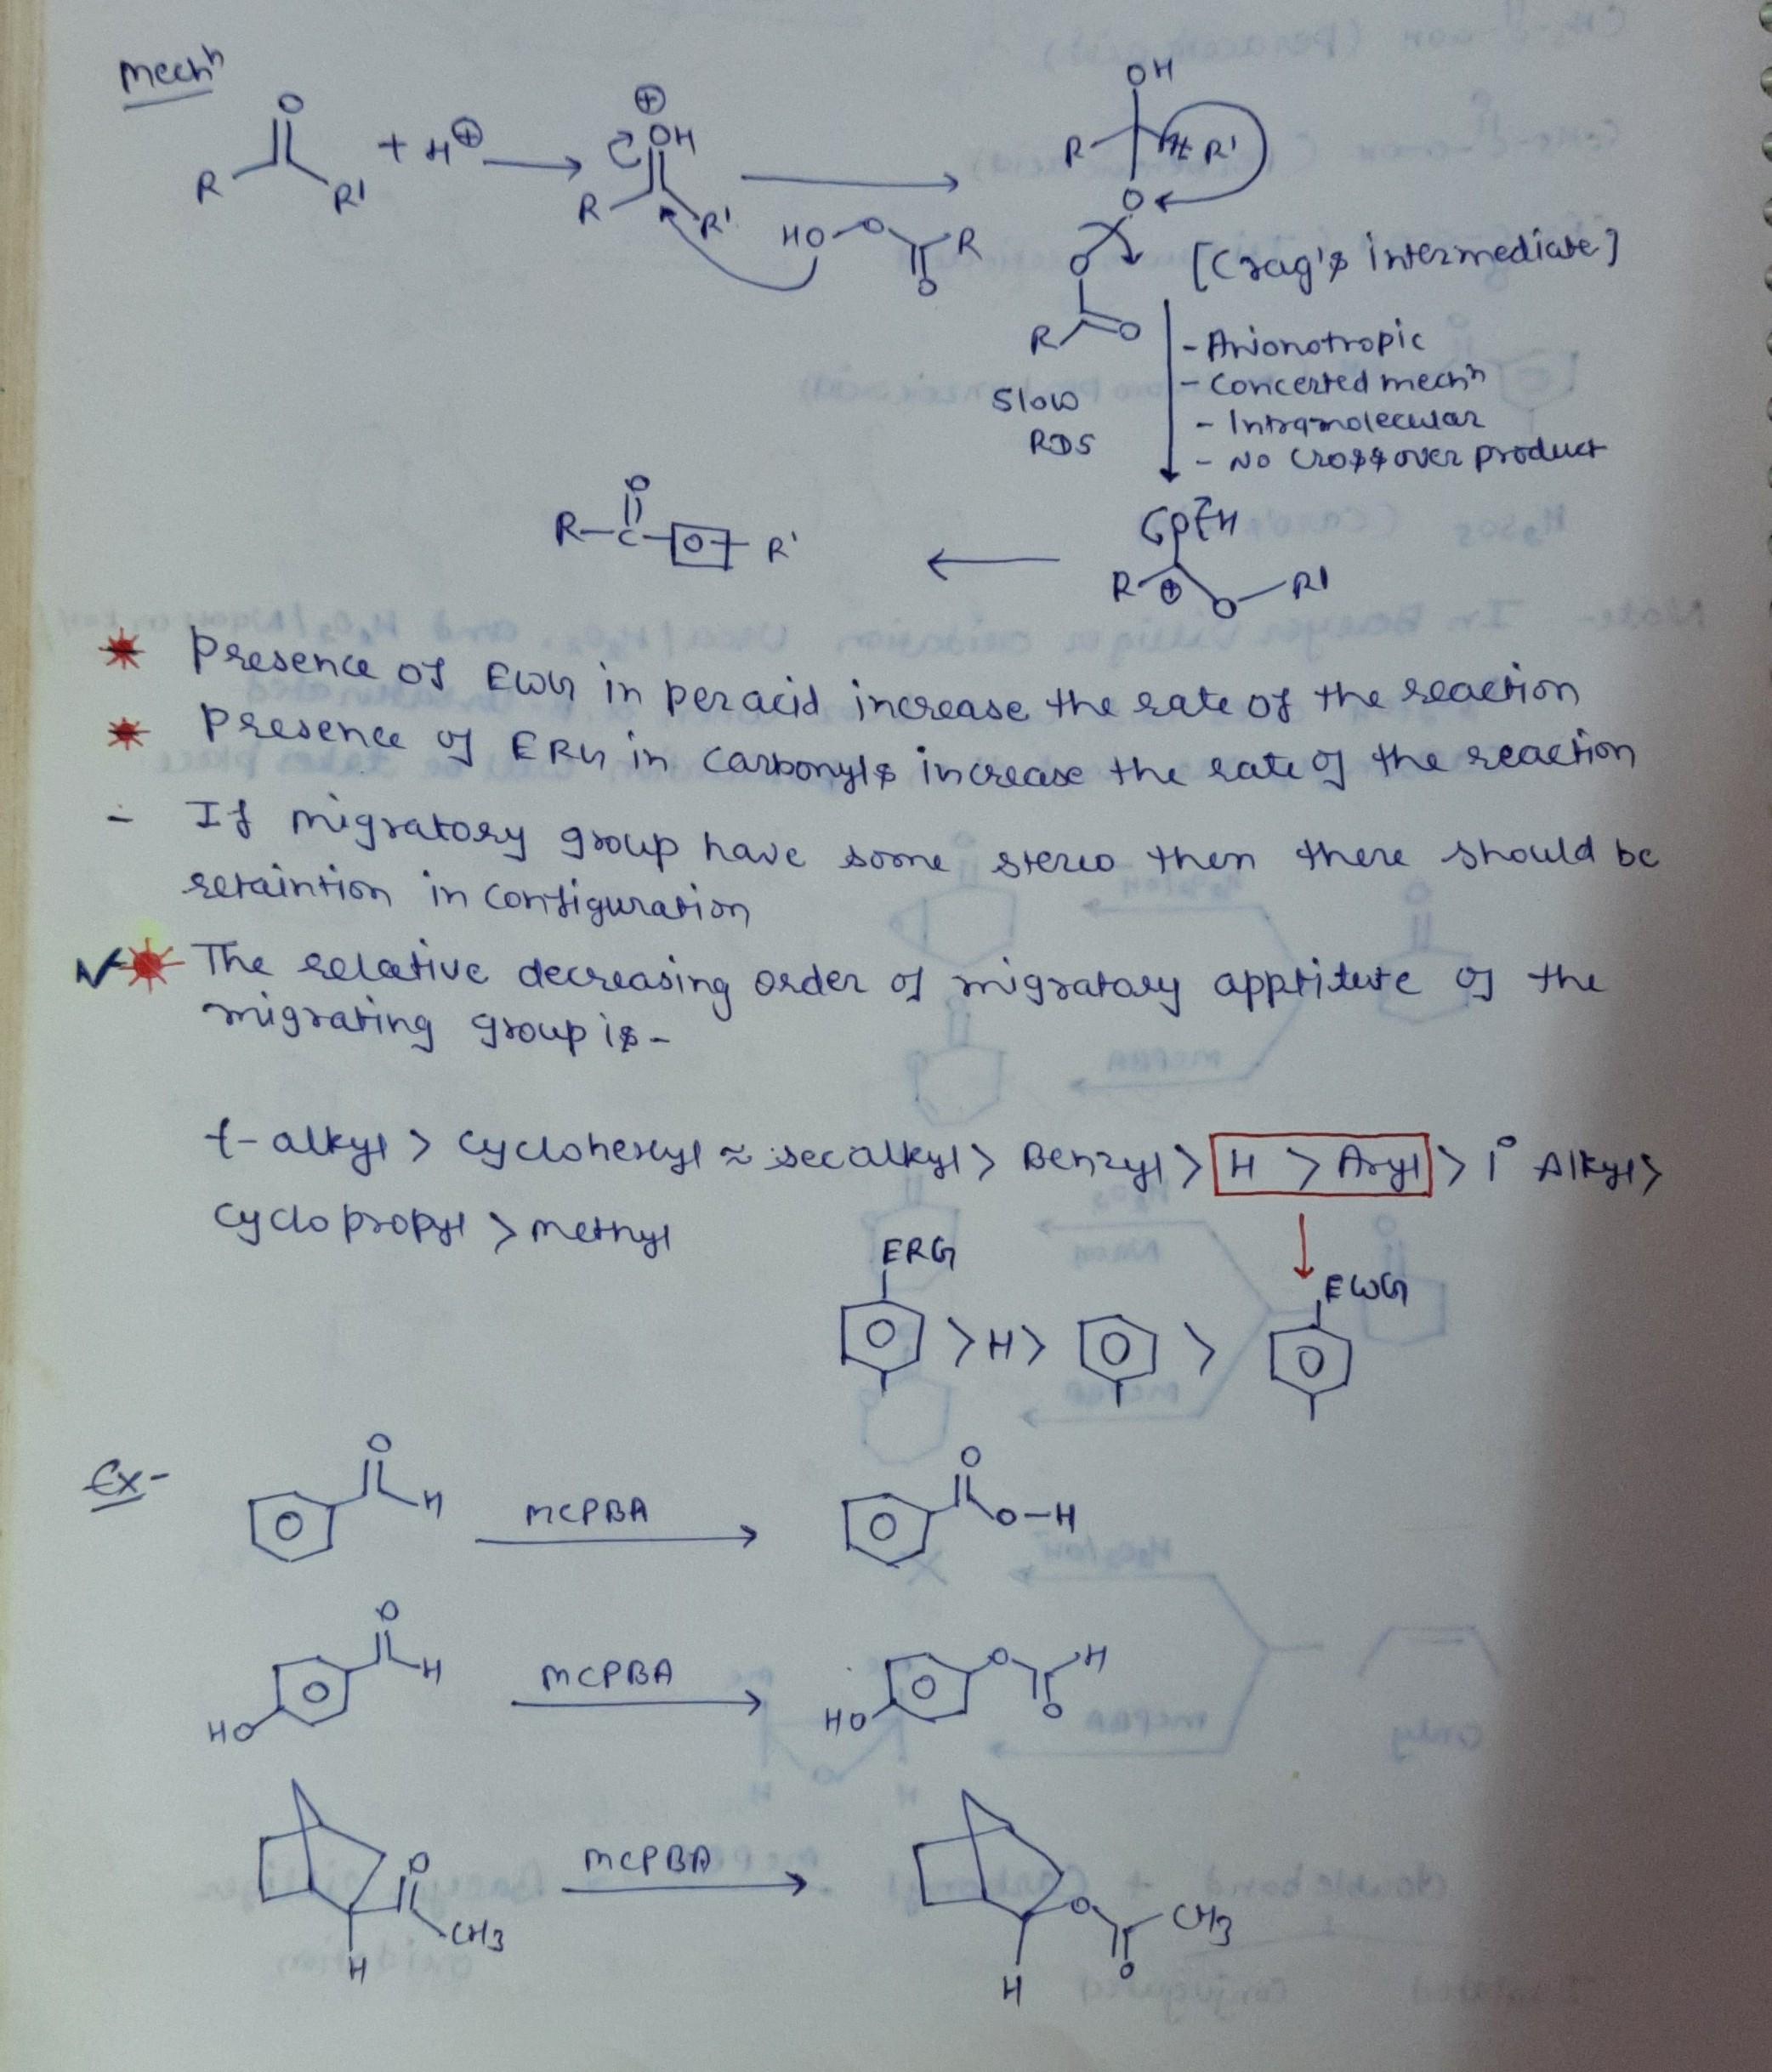 Mechⁿ
O
R R' + H⊕
⊕
OH
R R'
HO-O R
O
OH
R R'
O
O
R O
[Crag's intermediate]
Slow
RDS
- Anionotropic
- Concerted mechⁿ
- Intramolecular
- No Cross over product
R ⊕ O-R'
O
R-C-O-R'
* Presence of EWG in peracid increase the rate of the reaction
* Presence of ERG in Carbonyls increase the rate of the reaction
- If migratory group have some stereo then there should be
retaintion in configuration
* The relative decreasing order of migratory apptitute of the
migrating group is -
t-alkyl > Cyclohexyl ≈ sec alkyl > Benzyl > H > Aryl > 1° Alkyl >
Cyclopropyl > methyl
ERG
EWG
> H > >
Ex-
O
H
MCPBA
O
O-H
O
H
HO
MCPBA
HO
O H
O
O
CH3
H
MCPBA
O CH3
O
H